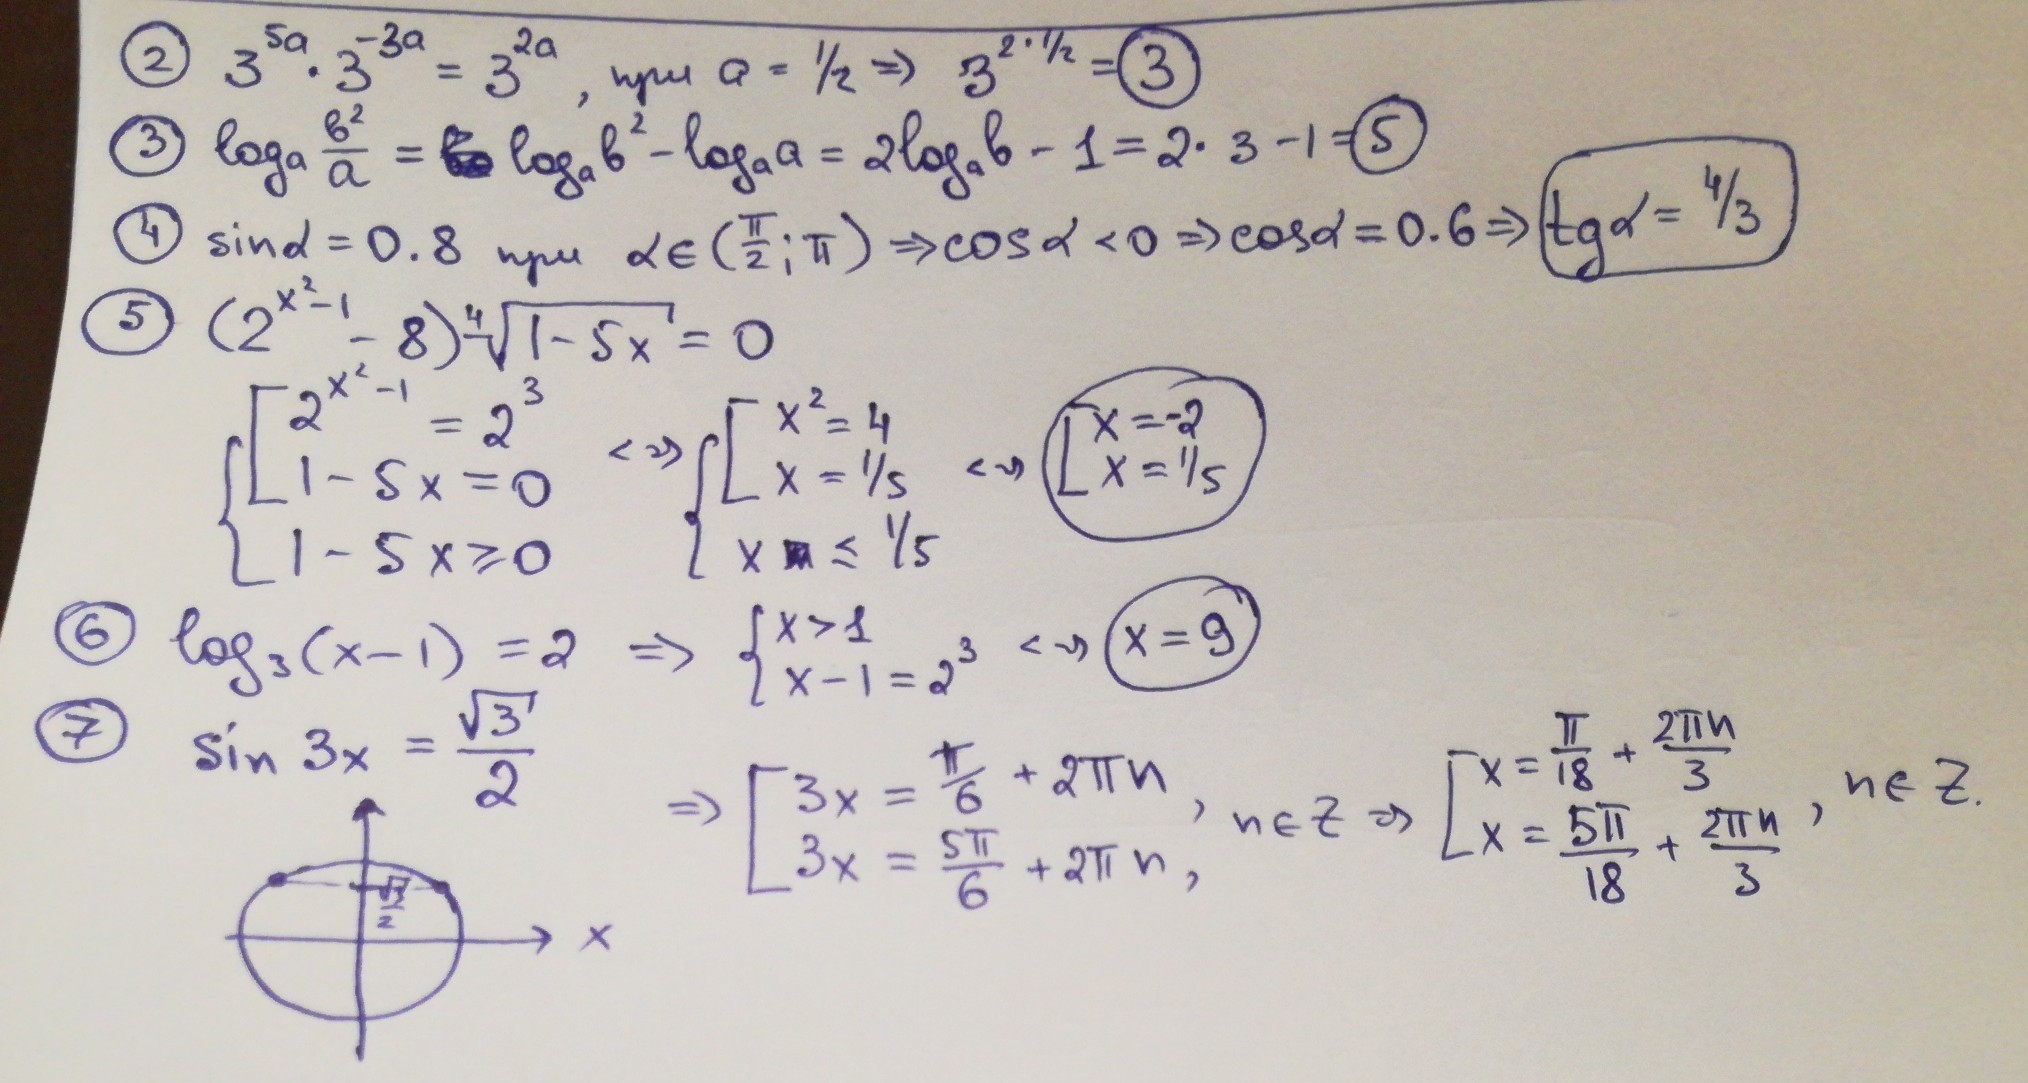 ② 3^{5a} · 3^{-3a} = 3^{2a}, при a = 1/2 ⇒ 3^{2·1/2} = 3
③ log_a b²/a = log_a b² - log_a a = 2log_a b - 1 = 2·3 - 1 = 5
④ sinα = 0.8 при α∈(π/2; π) ⇒ cosα < 0 ⇒ cosα = 0.6 ⇒ tgα = 4/3
⑤ (2^{x²-1} - 8) ⁴√(1-5x) = 0
{ [ 2^{x²-1} = 2³ <=> { [ x² = 4 <=> [ x = -2
1 - 5x = 0 x = 1/5 x = 1/5
1 - 5x ≥ 0 x ≤ 1/5
⑥ log₃(x-1) = 2 ⇒ { x > 1 <=> x = 9
x - 1 = 2³
⑦ sin 3x = √3/2
⇒ [ 3x = π/6 + 2πn, n∈Z ⇒ [ x = π/18 + 2πn/3, n∈Z.
3x = 5π/6 + 2πn, x = 5π/18 + 2πn/3
√3/2
x